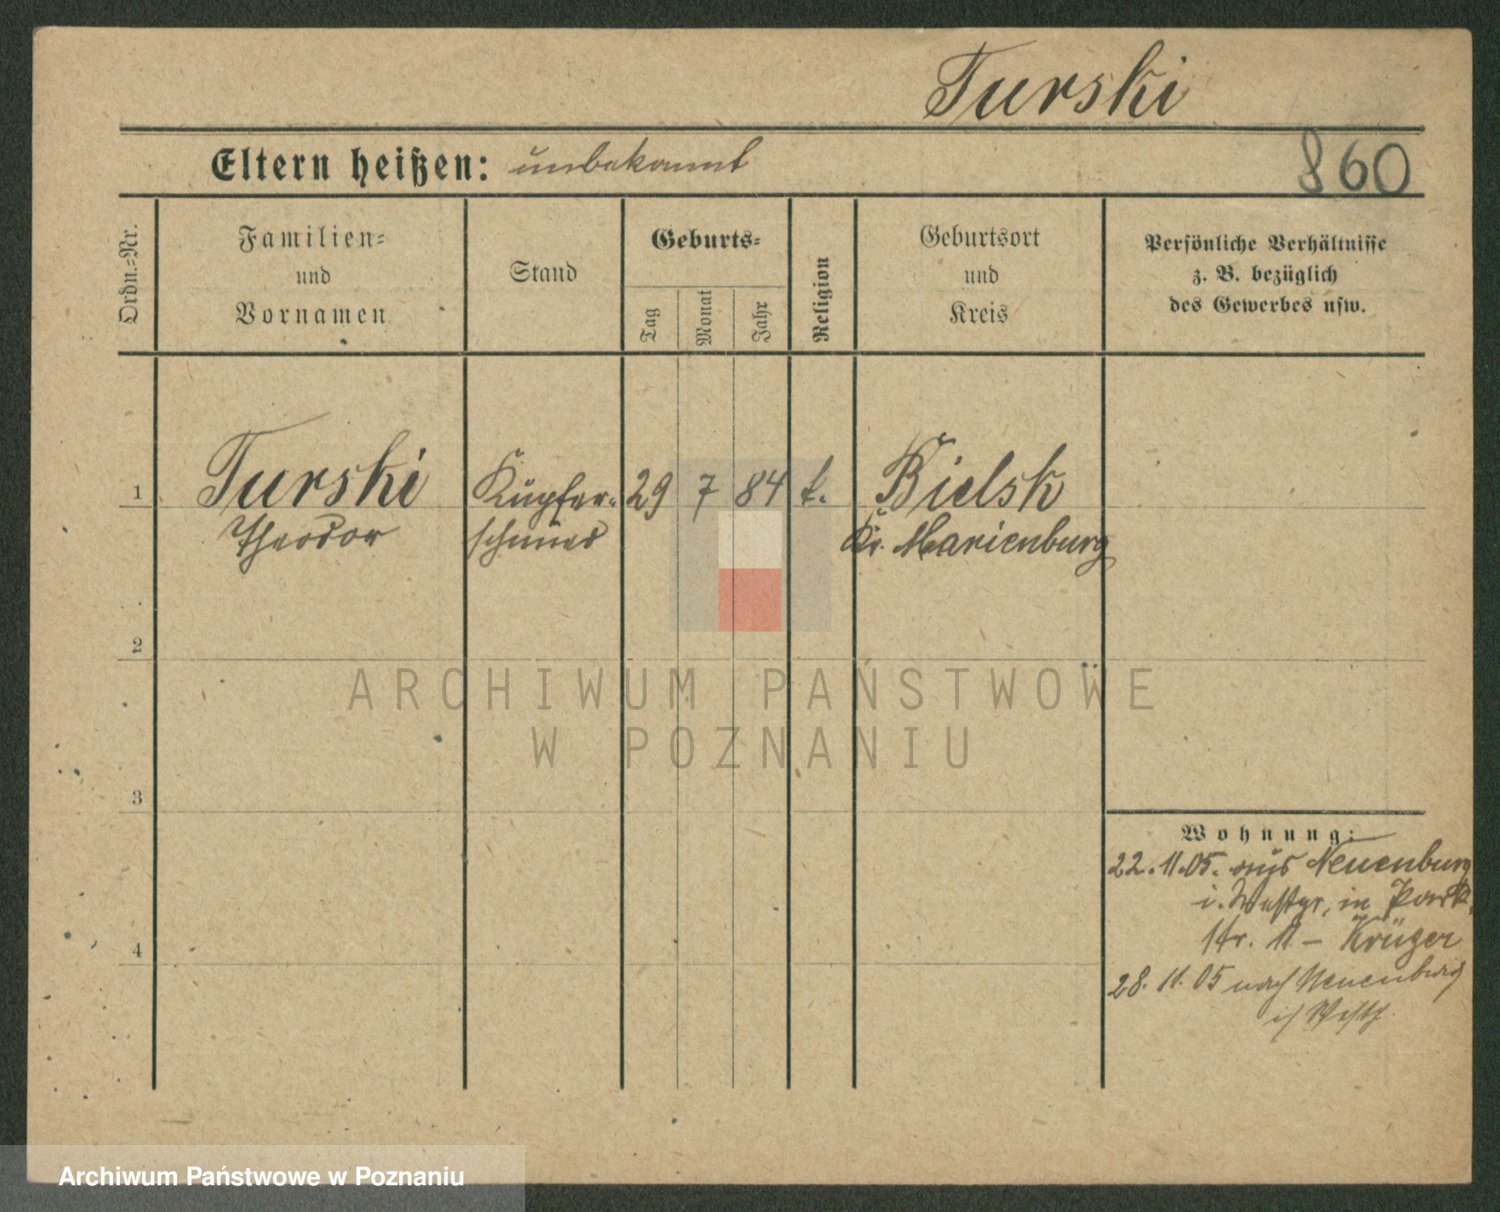 Turski
Eltern heißen: unbekannt
860
Ordn.-Nr.
Familien-
und
Vornamen
Stand
Geburts-
Tag
Monat
Jahr
Religion
Geburtsort
und
Kreis
Persönliche Verhältnisse
z. B. bezüglich
des Gewerbes usw.
1 Turski Kupfer- 29 7 84 k. Bielsk
Theodor schmied Kr. Marienburg
2
3
4
ARCHIWUM PAŃSTWOWE
W POZNANIU
Wohnung:
22.11.05. aus Neuenburg
i. Westpr. in Park
str. 11 – Krüger
28.11.05 nach Neuenburg
i/ Westp.
Archiwum Państwowe w Poznaniu